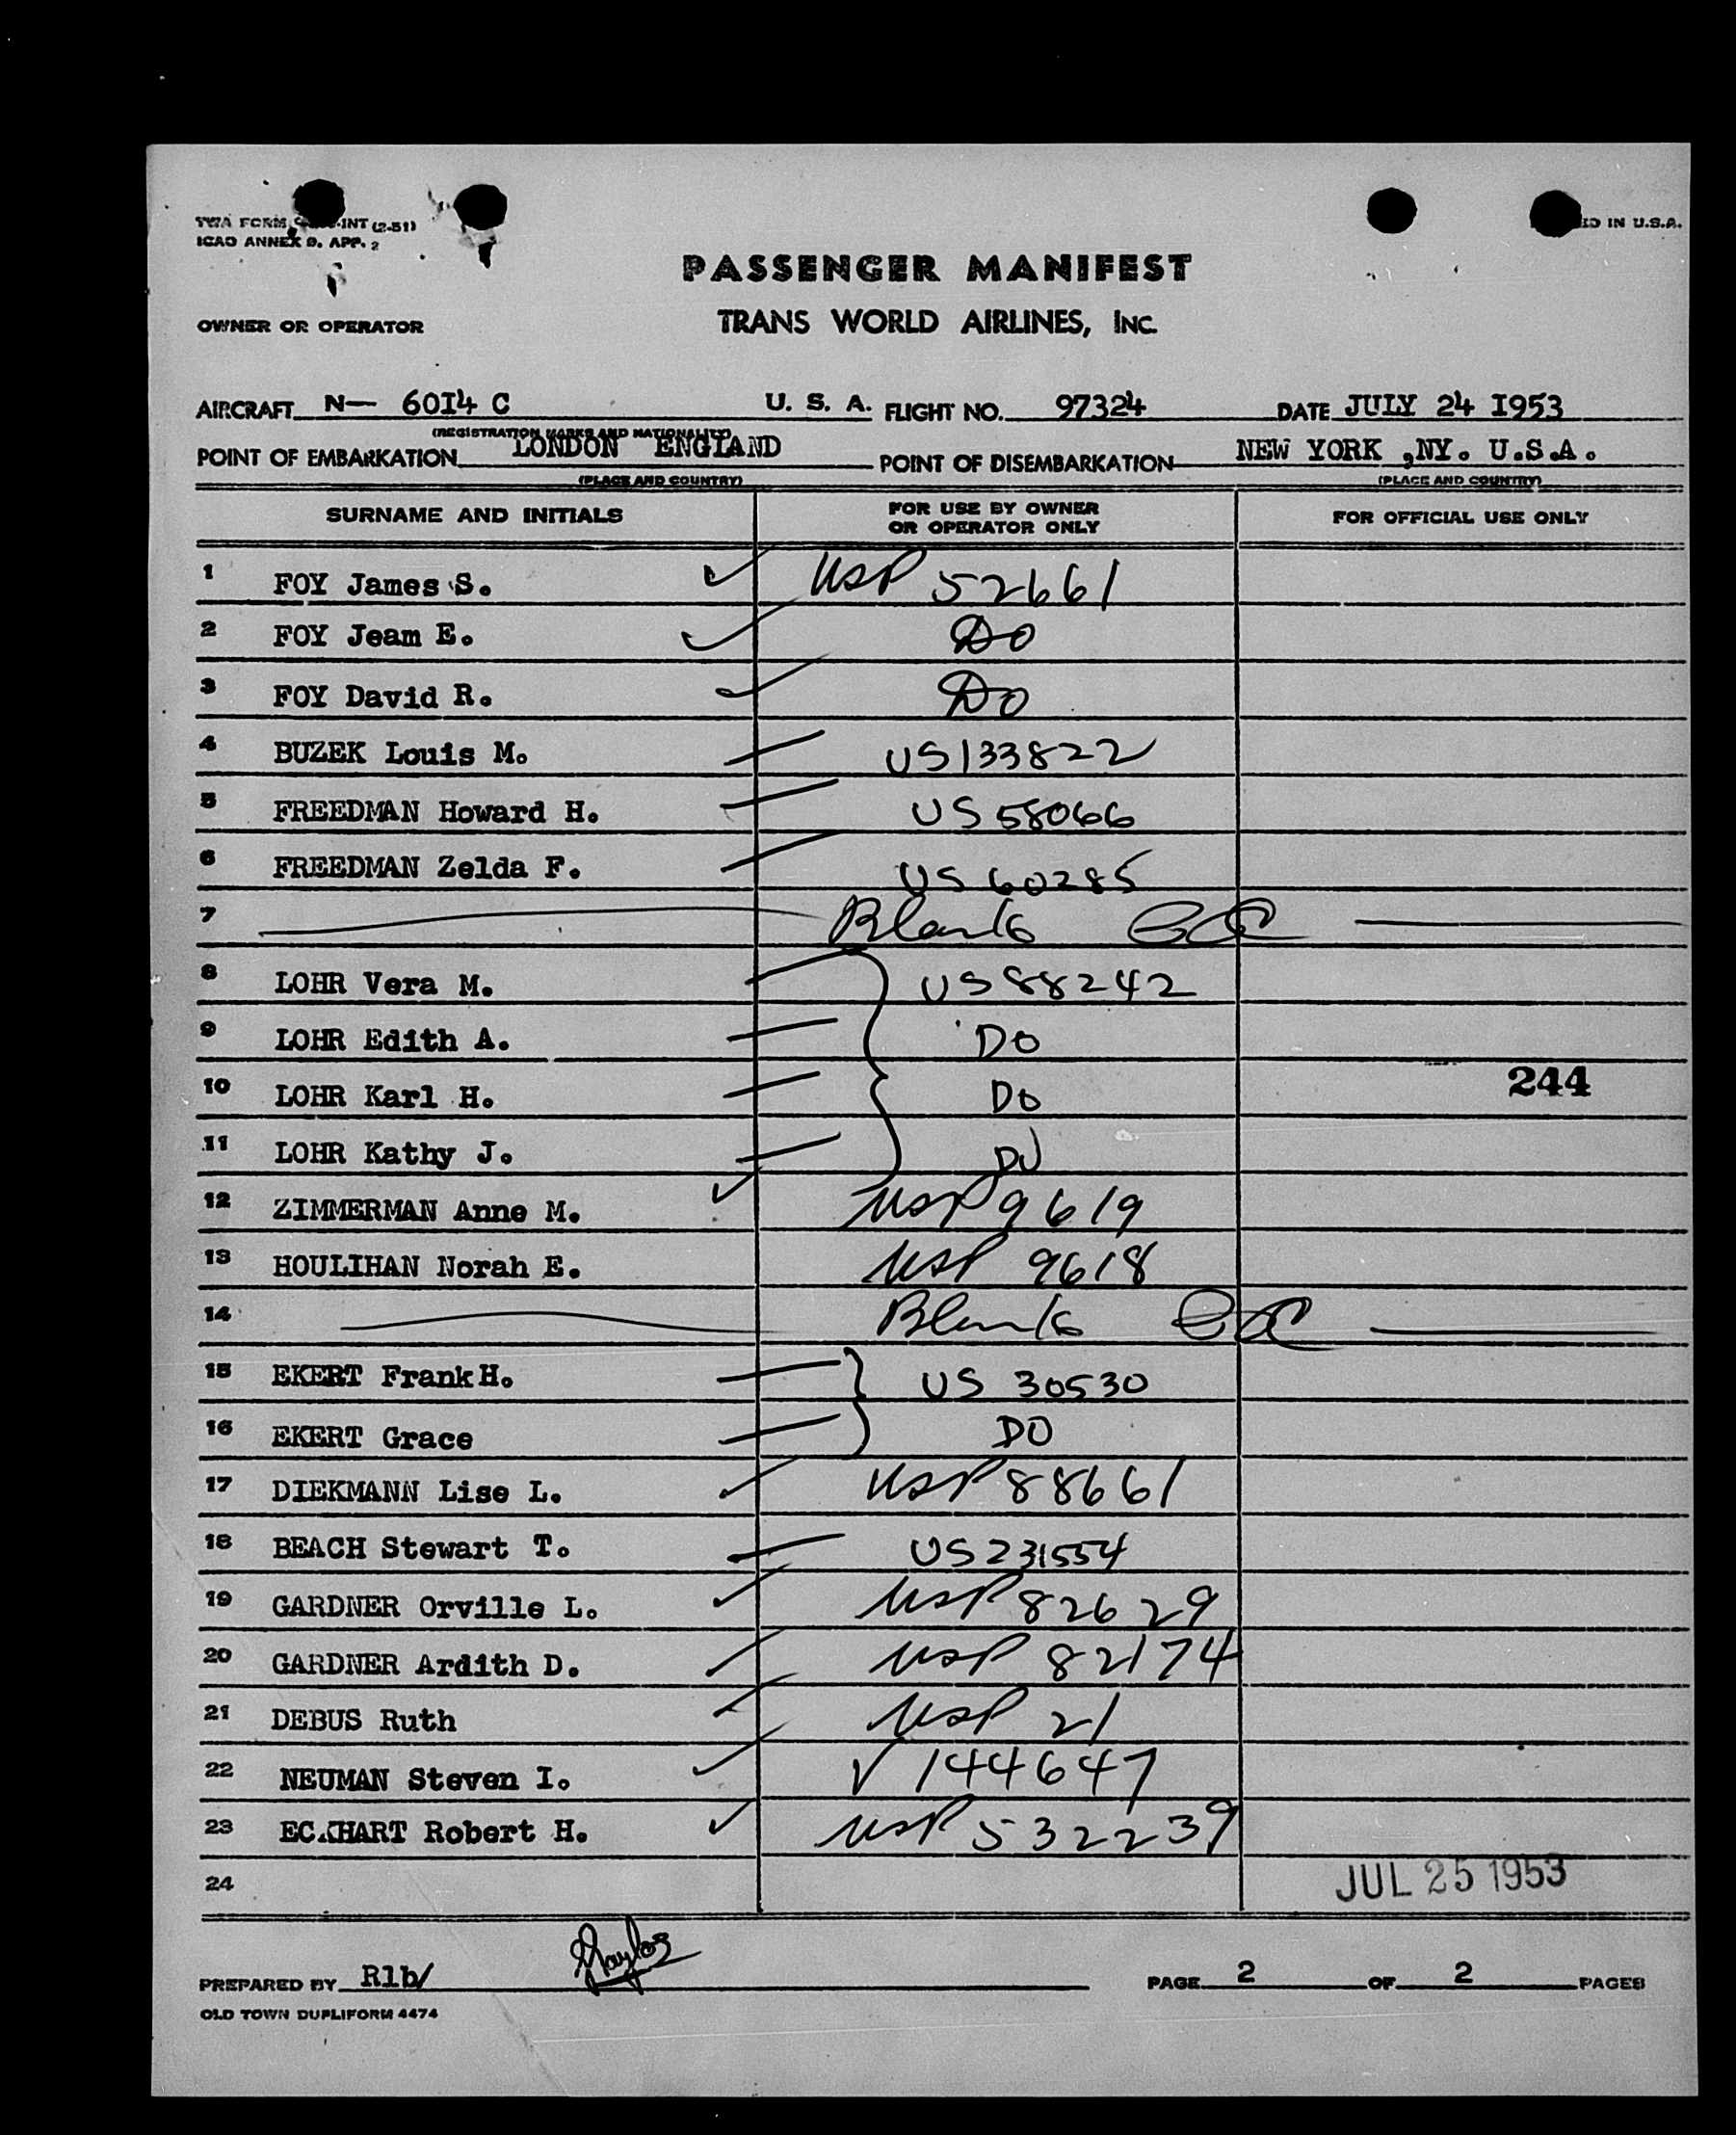 TWA FORM -INT (2-51)
ICAO ANNEX 9. APP. 2
IN U.S.A.
PASSENGER MANIFEST
OWNER OR OPERATOR
TRANS WORLD AIRLINES, INC.
AIRCRAFT N— 60I4 C U. S. A. FLIGHT NO. 97324 DATE JULY 24 I953
(REGISTRATION MARKS AND NATIONALITY)
POINT OF EMBARKATION LONDON ENGLAND POINT OF DISEMBARKATION NEW YORK ,NY. U.S.A.
(PLACE AND COUNTRY) (PLACE AND COUNTRY)
SURNAME AND INITIALS FOR USE BY OWNER OR OPERATOR ONLY FOR OFFICIAL USE ONLY
1 FOY James S. USP 52661
2 FOY Jeam E. DO
3 FOY David R. DO
4 BUZEK Louis M. US133822
5 FREEDMAN Howard H. US 58066
6 FREEDMAN Zelda F. US 60285
7 Blank
8 LOHR Vera M. US88242
9 LOHR Edith A. DO
10 LOHR Karl H. DO 244
11 LOHR Kathy J. DO
12 ZIMMERMAN Anne M. USP 9619
13 HOULIHAN Norah E. USP 9618
14 Blank
15 EKERT Frank H. US 30530
16 EKERT Grace DO
17 DIEKMANN Lise L. USP 88661
18 BEACH Stewart T. US231554
19 GARDNER Orville L. USP 82629
20 GARDNER Ardith D. USP 82174
21 DEBUS Ruth USP 21
22 NEUMAN Steven I. V 144647
23 ECKHART Robert H. USP 532239
24 JUL 25 1953
PREPARED BY Rlb/ PAGE 2 OF 2 PAGES
OLD TOWN DUPLIFORM 4474